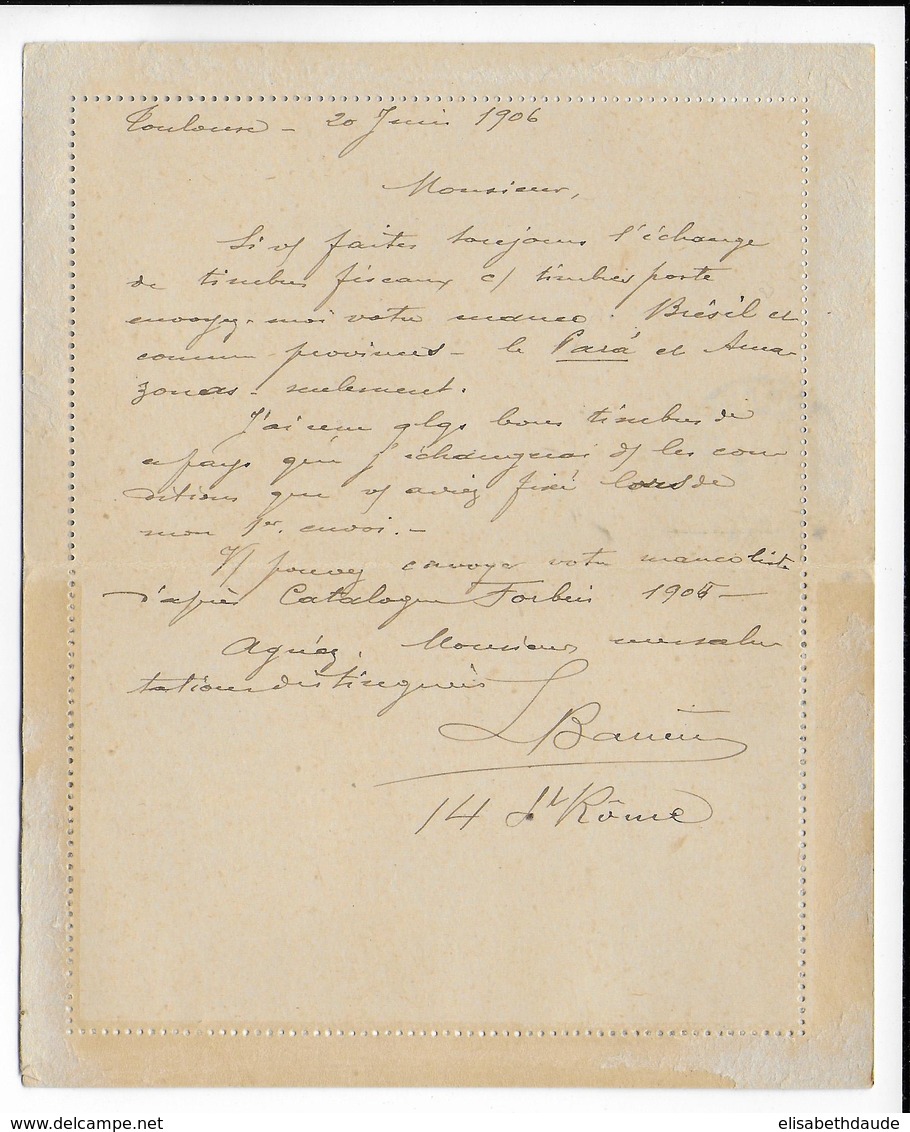 Toulouse - 20 Juin 1906
Monsieur,
Si vs faites toujours l'échange
de timbres fiscaux c/ timbres poste
envoyez-moi votre manco. Brésil et
comme provinces - le Pará et Ama
zonas - seulement.
J'ai reçu qlqs bons timbres de
ce pays que j'échangerai ds les con
ditions que vs aviez fixé lors de
mon 1er envoi. -
Vs pouvez envoyer votre mancoliste
d'après Catalogue Forbin 1905 -
Agréez, Monsieur, mes salu
tations distinguées
14 St Rôme
elisabethdaude